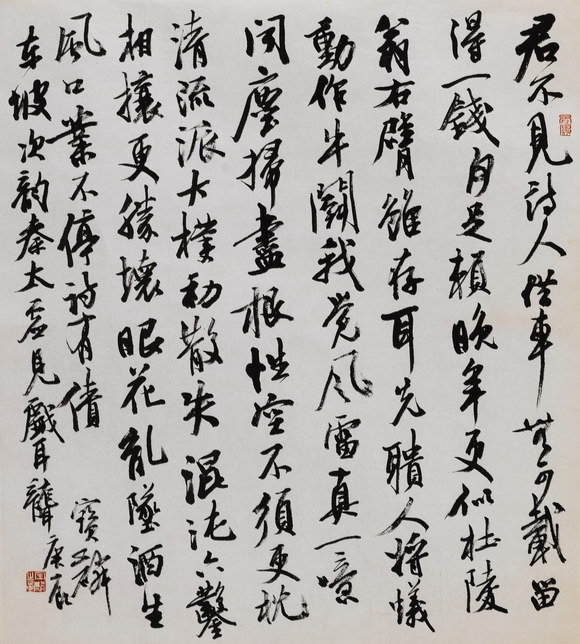 君不見詩人借車無可載留
得一錢何足賴晚年更似杜陵
翁右臂雖存耳先聵人將蟻
動作牛鬪我覺風雷真一噫
聞塵掃盡根性空不須更枕
清流派大樸初散失混沌六鑿
相攘更勝壞眼花亂墜酒生
風口業不停詩有債
东坡次韵秦太虛見戲耳聾 庚辰
寶